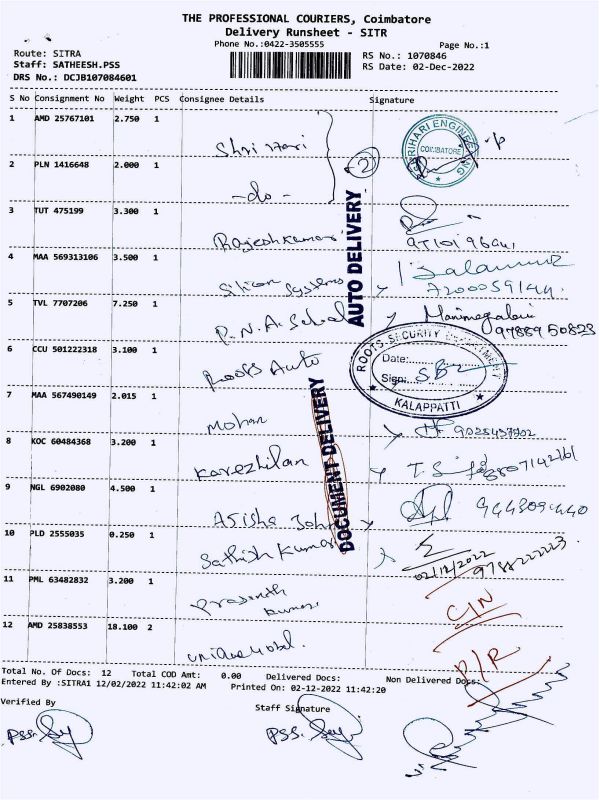 THE PROFESSIONAL COURIERS, Coimbatore
Delivery Runsheet - SITR
Phone No.:0422-3505555
Page No.:1
Route: SITRA
RS No.: 1070846
Staff: SATHEESH.PSS
RS Date: 02-Dec-2022
DRS No.: DCJB107084601
S No Consignment No Weight PCS Consignee Details Signature
1 AMD 25767101 2.750 1
Shri Hari
SRIHARI ENGINEERING
COIMBATORE
2 PLN 1416648 2.000 1
- do -
2
3 TUT 475199 3.300 1
Rajeshkumar
4 MAA 569313106 3.500 1
Silicon Systems
7200059144
5 TVL 7707206 7.250 1
P.N.A. School
Manimegalai
9788950823
6 CCU 501222318 3.100 1
Roots Auto
ROOTS SECURITY DEPARTMENT
Date:
Sign:
KALAPPATTI
7 MAA 567490149 2.015 1
Mohan
8 KOC 60484368 3.200 1
Karezhilan
9 NGL 6902080 4.500 1
Asisha John
10 PLD 2555035 0.250 1
Sathish Kumar
02/12/2022
11 PML 63482832 3.200 1
Prasanth Kumar
C/N
12 AMD 25838553 18.100 2
D/R
AUTO DELIVERY
DOCUMENT DELIVERY
Total No. Of Docs: 12 Total COD Amt: 0.00 Delivered Docs: Non Delivered Docs:
Entered By :SITRA1 12/02/2022 11:42:02 AM Printed On: 02-12-2022 11:42:20
Verified By
Staff Signature
PSS.
PSS.